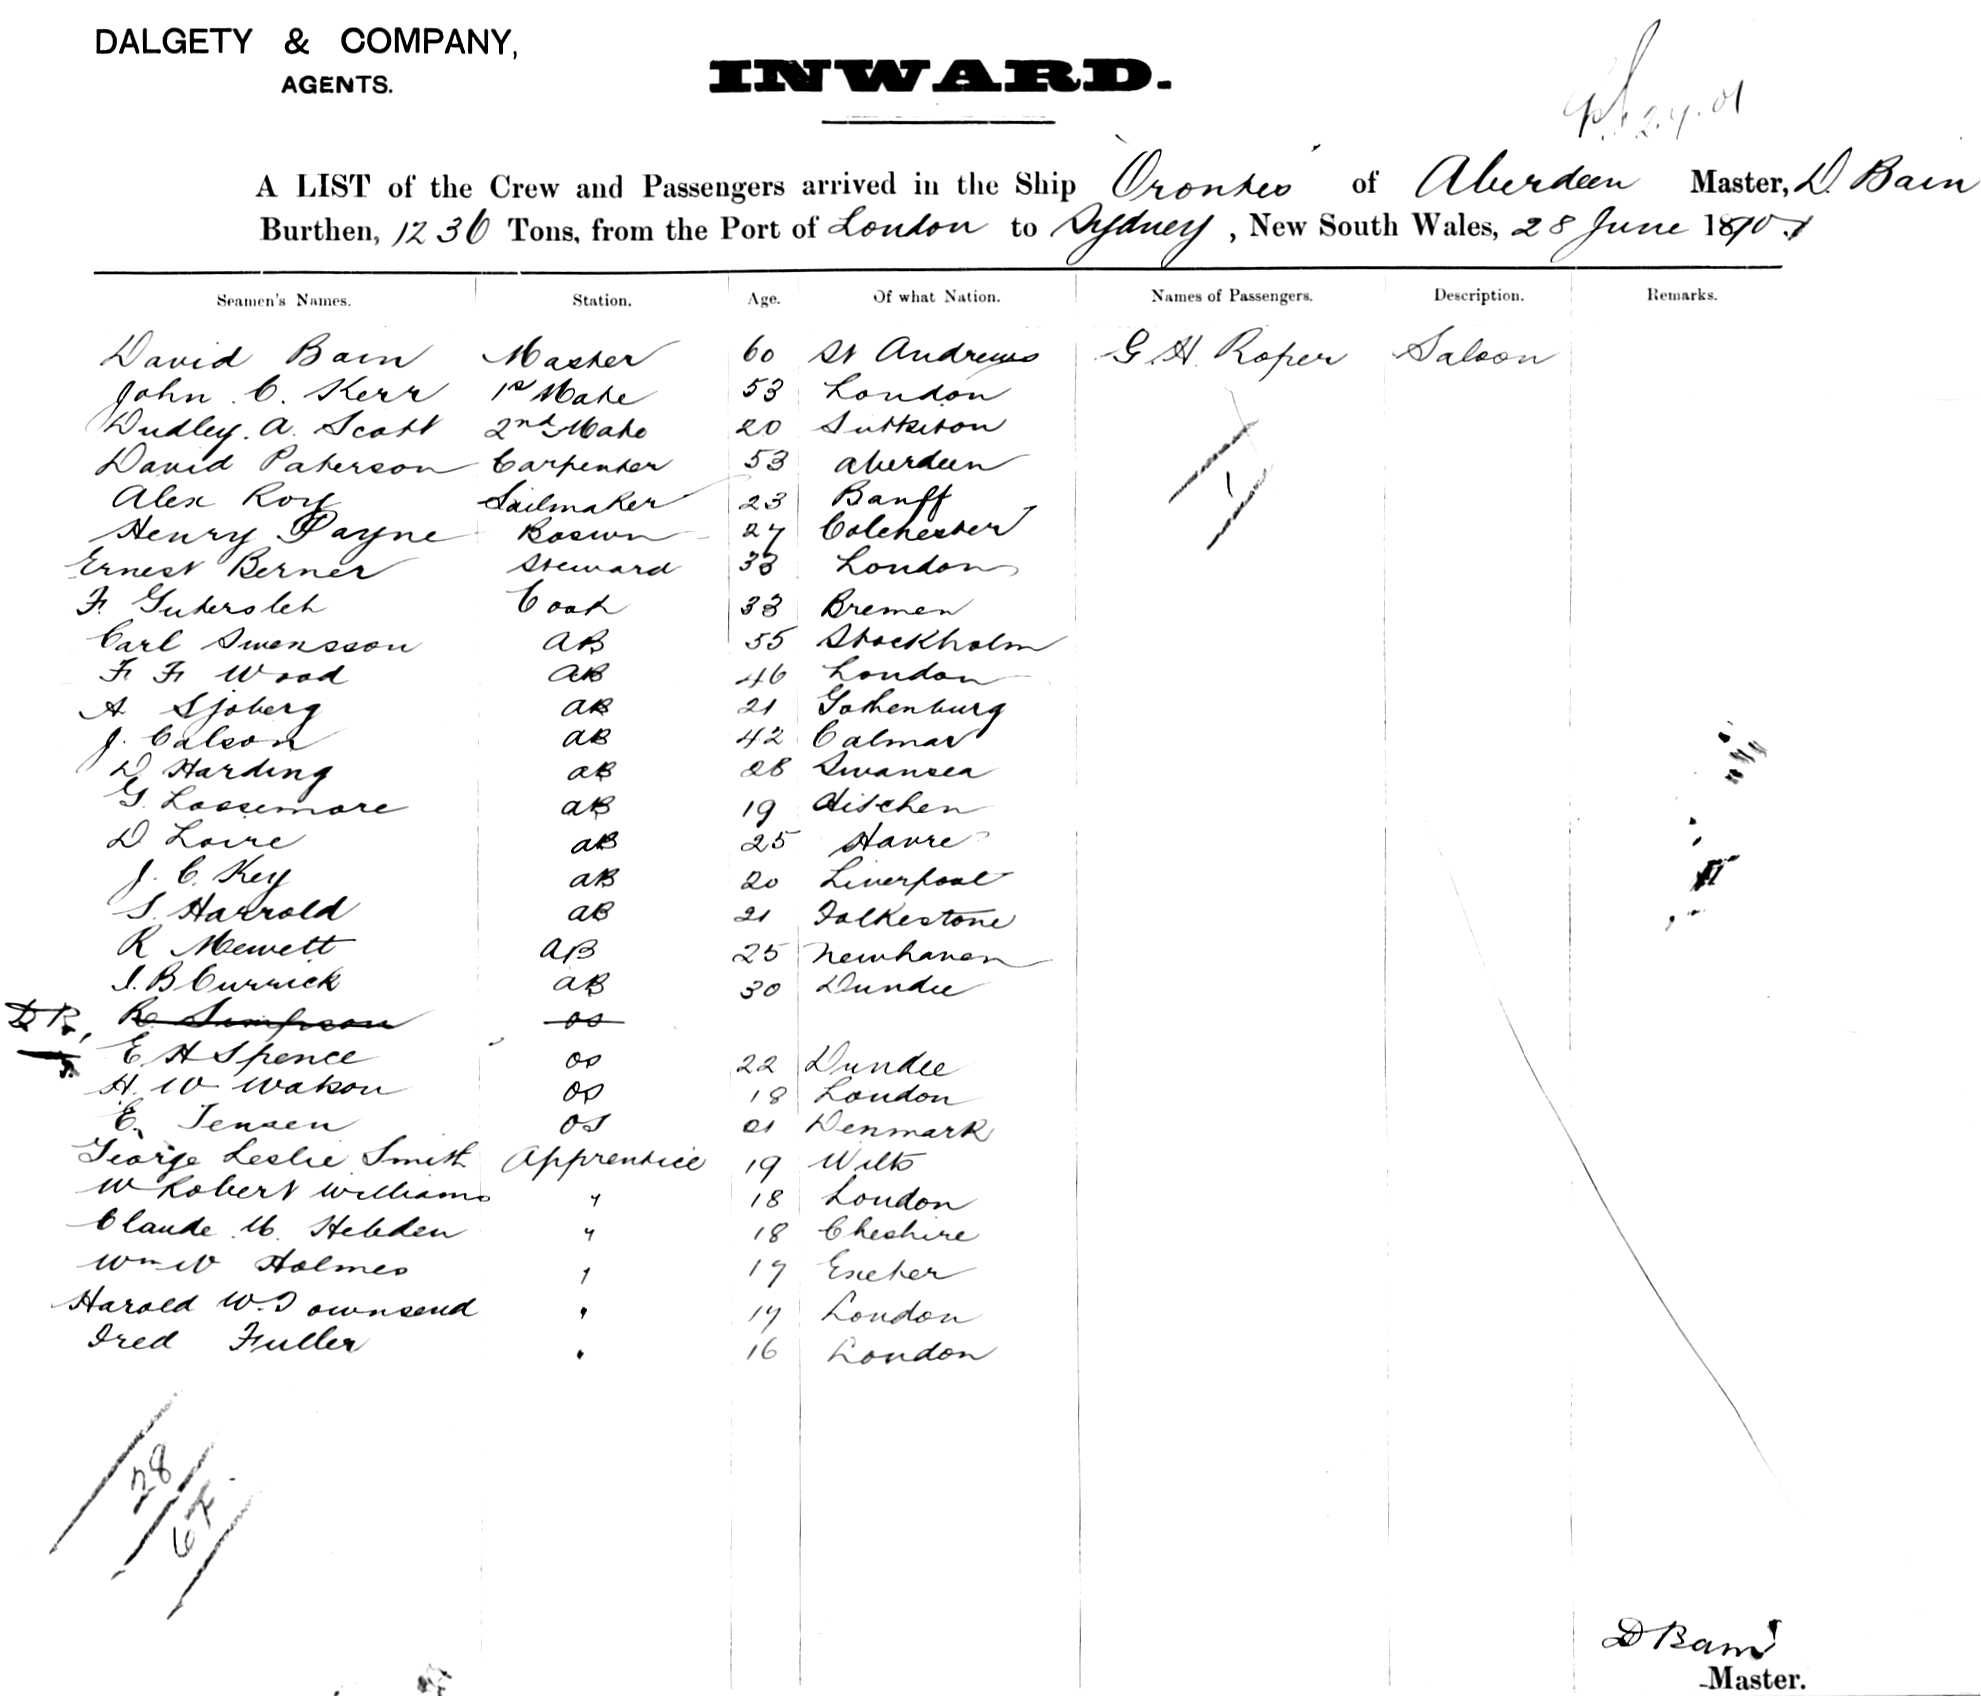 DALGETY & COMPANY,
AGENTS.
INWARD.
2.7.01
A LIST of the Crew and Passengers arrived in the Ship "Orontes" of Aberdeen Master, D. Bain
Burthen, 1236 Tons, from the Port of London to Sydney, New South Wales, 28 June 1901
Seamen's Names. Station. Age. Of what Nation. Names of Passengers. Description. Remarks.
David Bain Master 60 St Andrews G. H. Roper Saloon
John C. Kerr 1st Mate 53 London
Dudley. A. Scott 2nd Mate 20 Surbiton
David Paterson Carpenter 53 Aberdeen
Alex Roy Sailmaker 23 Banff
Henry Payne Boswn 27 Colchester
Ernest Berner Steward 33 London
F. Gutersleh Cook 33 Bremen
Carl Swensson AB 55 Stockholm
F F Wood AB 46 London
A Sjoberg AB 21 Gothenburg
J. Calson AB 42 Calmar
D Harding AB 28 Swansea
G. Loosemore AB 19 Hitchen
D Loire AB 25 Havre
J. C. Key AB 20 Liverpool
S. Harrold AB 21 Folkestone
R Mewett AB 25 Newhaven
J. B Currick AB 30 Dundee
DR, R Simpson OS
E H Spence OS 22 Dundee
H. W Watson OS 18 London
E. Jensen OS 21 Denmark
George Leslie Smith Apprentice 19 Wilts
W Robert Williams " 18 London
Claude M. Hebden " 18 Cheshire
Wm W Holmes " 17 Exeter
Harold W. Townsend " 17 London
Fred Fuller " 16 London
1
28
D Bain
Master.